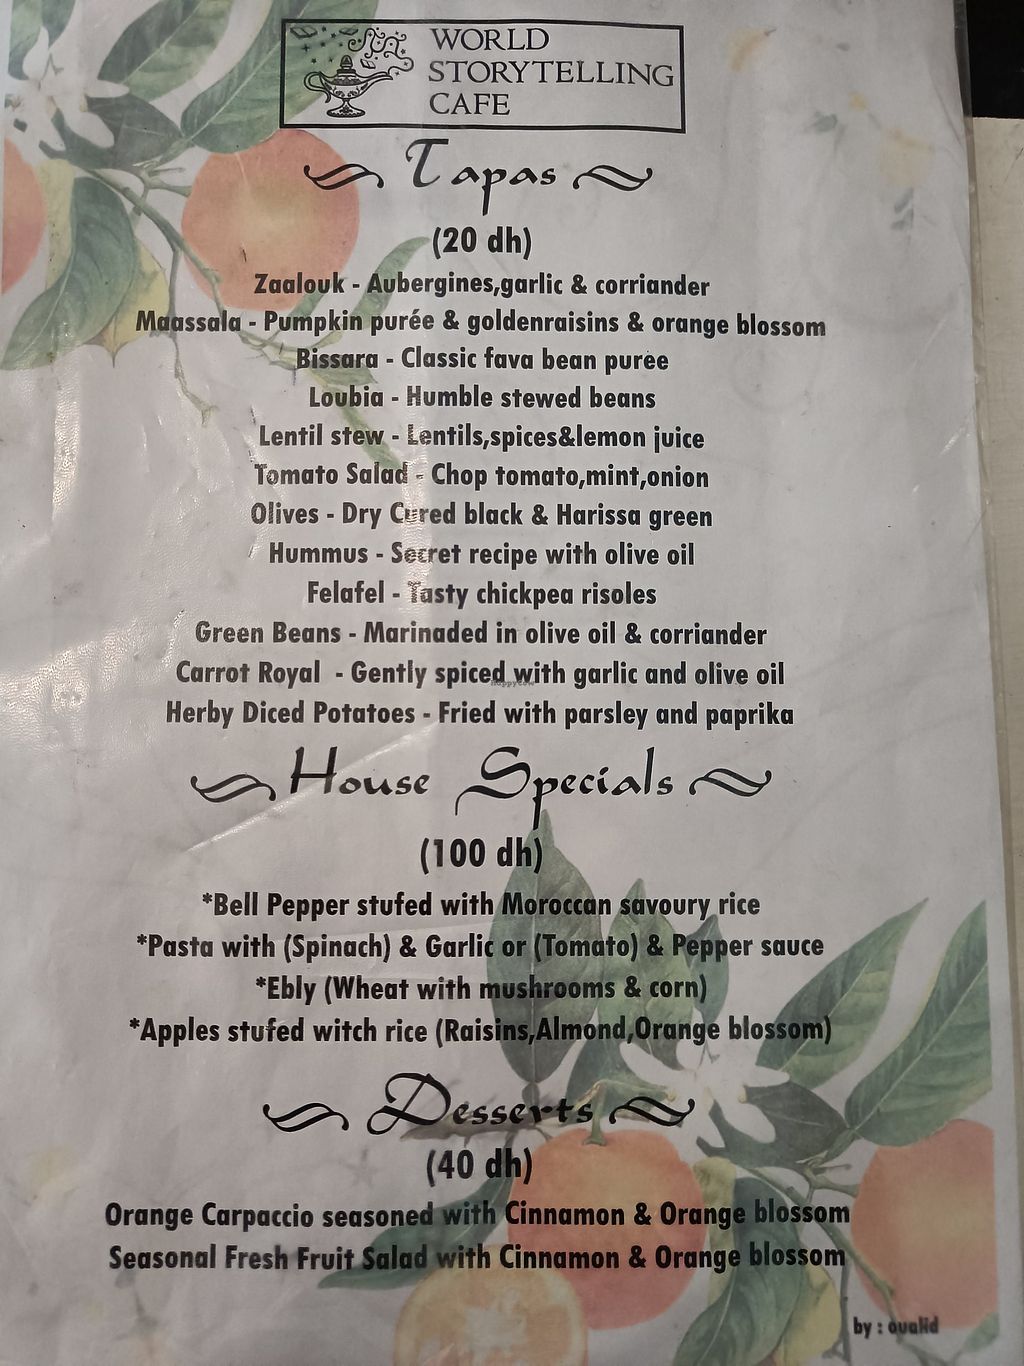 WORLD
STORYTELLING
CAFE
Tapas
(20 dh)
Zaalouk - Aubergines,garlic & corriander
Maassala - Pumpkin purée & goldenraisins & orange blossom
Bissara - Classic fava bean purèe
Loubia - Humble stewed beans
Lentil stew - Lentils,spices&lemon juice
Tomato Salad - Chop tomato,mint,onion
Olives - Dry Cured black & Harissa green
Hummus - Secret recipe with olive oil
Felafel - Tasty chickpea risoles
Green Beans - Marinaded in olive oil & corriander
Carrot Royal - Gently spiced with garlic and olive oil
happycow
Herby Diced Potatoes - Fried with parsley and paprika
House Specials
(100 dh)
*Bell Pepper stufed with Moroccan savoury rice
*Pasta with (Spinach) & Garlic or (Tomato) & Pepper sauce
*Ebly (Wheat with mushrooms & corn)
*Apples stufed witch rice (Raisins,Almond,Orange blossom)
Desserts
(40 dh)
Orange Carpaccio seasoned with Cinnamon & Orange blossom
Seasonal Fresh Fruit Salad with Cinnamon & Orange blossom
by : oualid